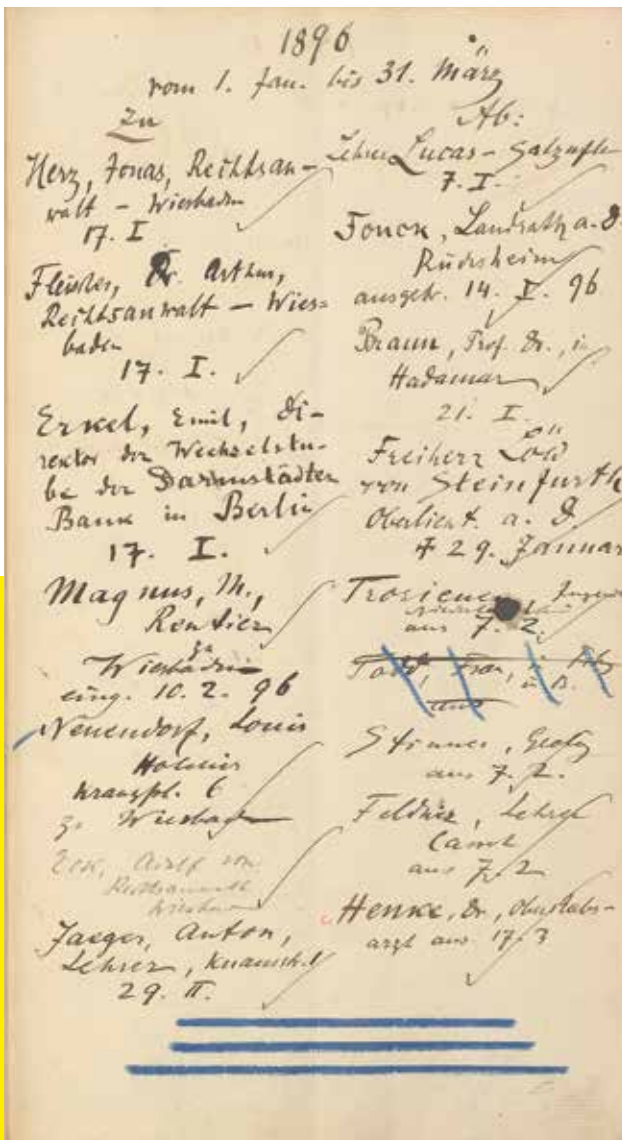 1896
vom 1. Jan. bis 31. März
Zu
Herz, Jonas, Rechtsan-
walt - Wiesbaden
17. I
Fleischer, Dr. Arthur,
Rechtsanwalt - Wies=
baden
17. I.
Erkel, Emil, Di-
rektor der Wechselstu-
be der Darmstädter
Bank in Berlin
17. I.
Magnus, M.,
Rentier
zu
Wiesbaden
eing. 10. 2. 96
Neuendorf, Louis
Kranzpl. 6
zu Wiesbaden
Eck, Adolf von
Rechtsanwalt
Wiesbaden
Jaeger, Anton,
Lehrer,
29. II.
Ab:
Lehrer Lucas - Salzuflen
7. I.
Fonck, Landrath a. D.
Rüdesheim
ausgetr. 14. I. 96
Braun, Prof. Dr., in
Hadamar
21. I.
Freiherr Löw
von Steinfurth
Oberlieut. a. D.
29. Januar
aus 7. 2.
Frau,
aus
aus 7. 2.
Feldner, Lehrer
Cassel
aus 7. 2
Henke, Dr., Oberstabs-
arzt aus 17. 3